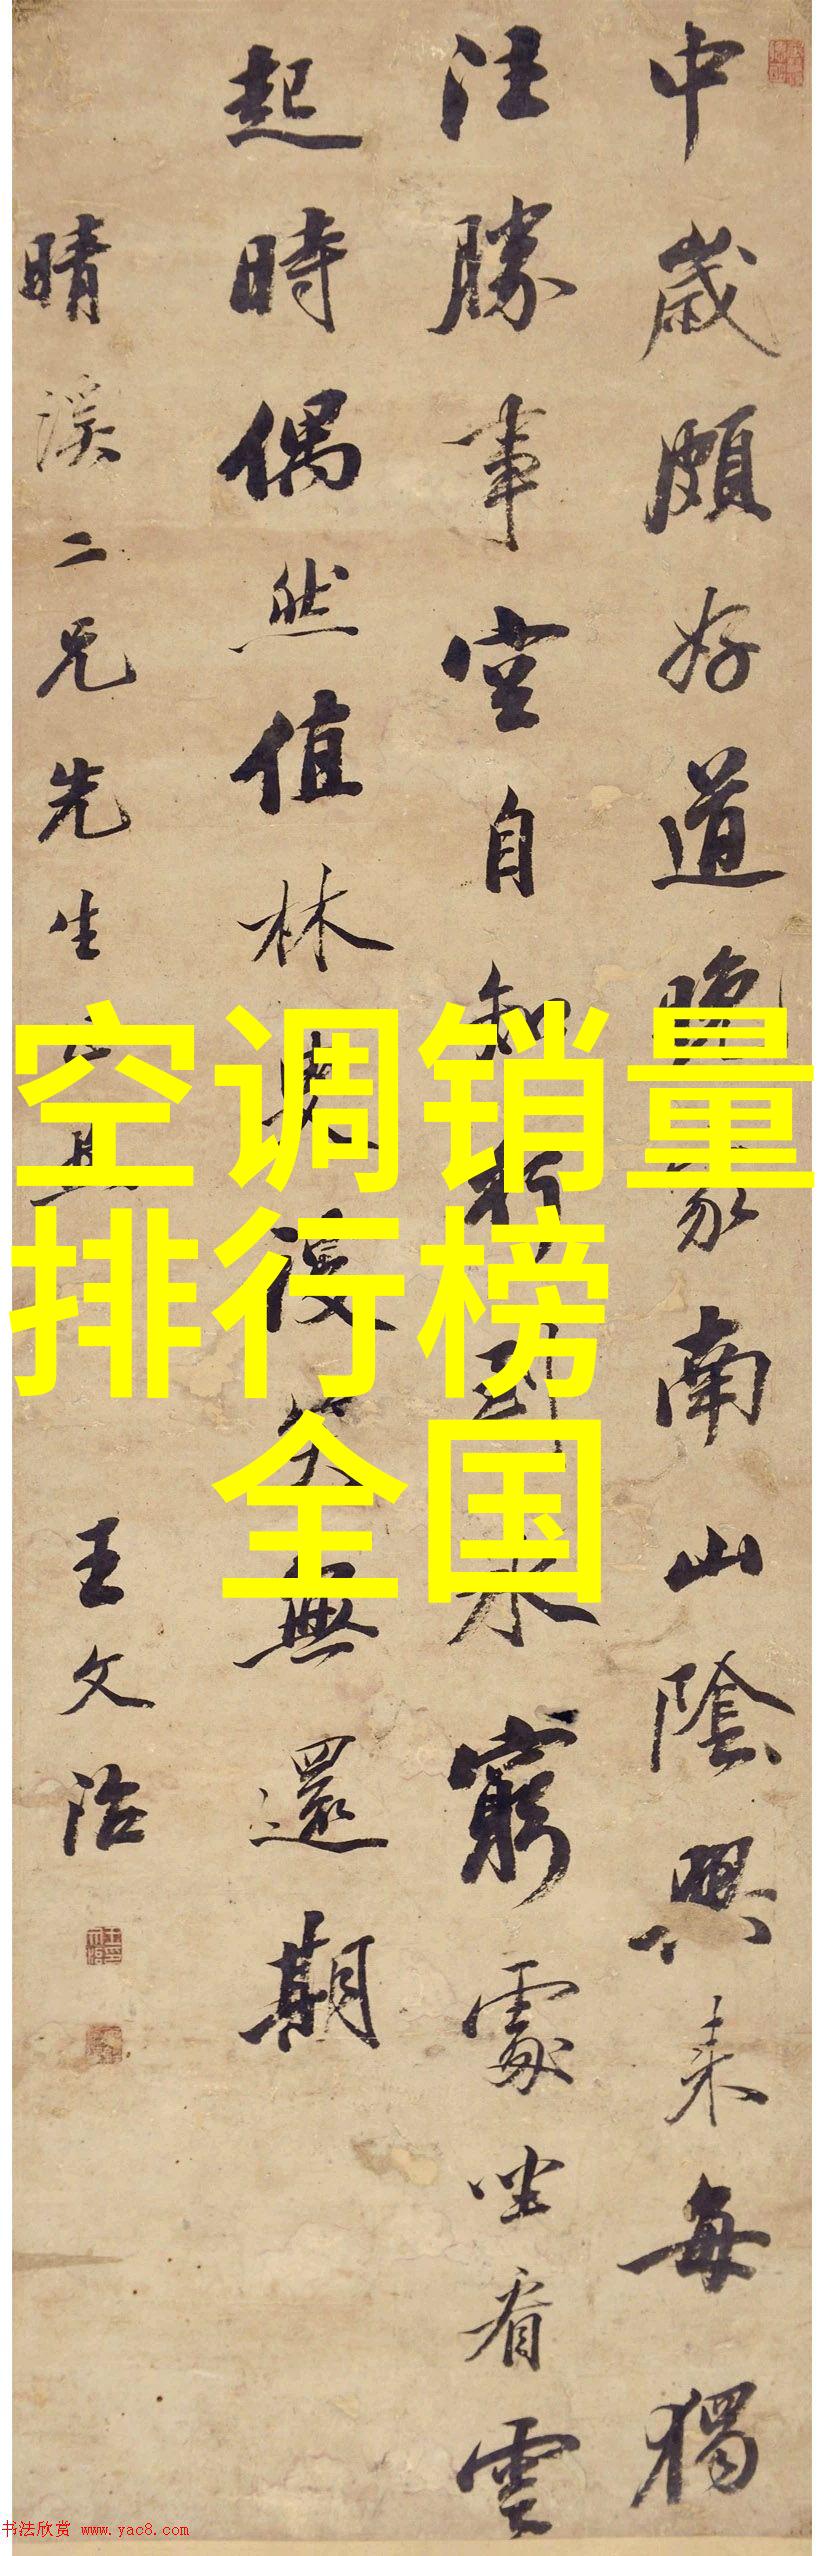 中歲頗好道晚家南山陲興來每獨
往勝事空自知行到水窮處坐看雲
起時偶然值林叟談笑無還期
晴溪二兄先生
王文治
空调销量
排行榜
全国
书法欣赏 www.yac8.com